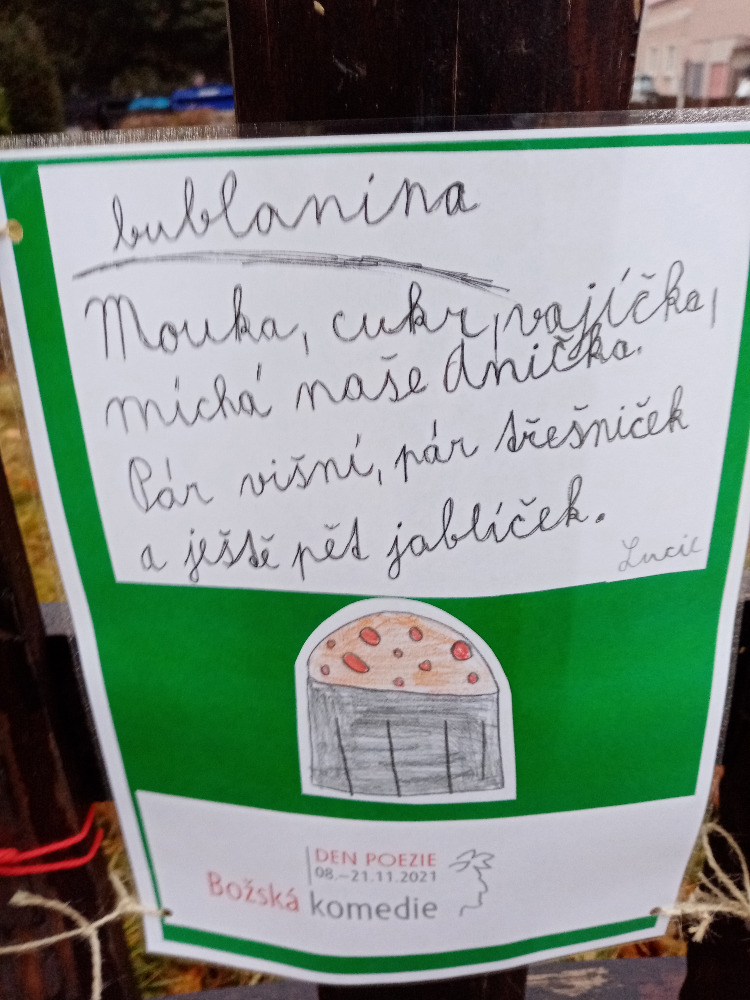 bublanina
Mouka, cukr, vajíčka,
míchá naše Anička.
Pár višní, pár třešniček
a ještě pět jablíček.
Lucie
DEN POEZIE
08.–21.11.2021
Božská komedie